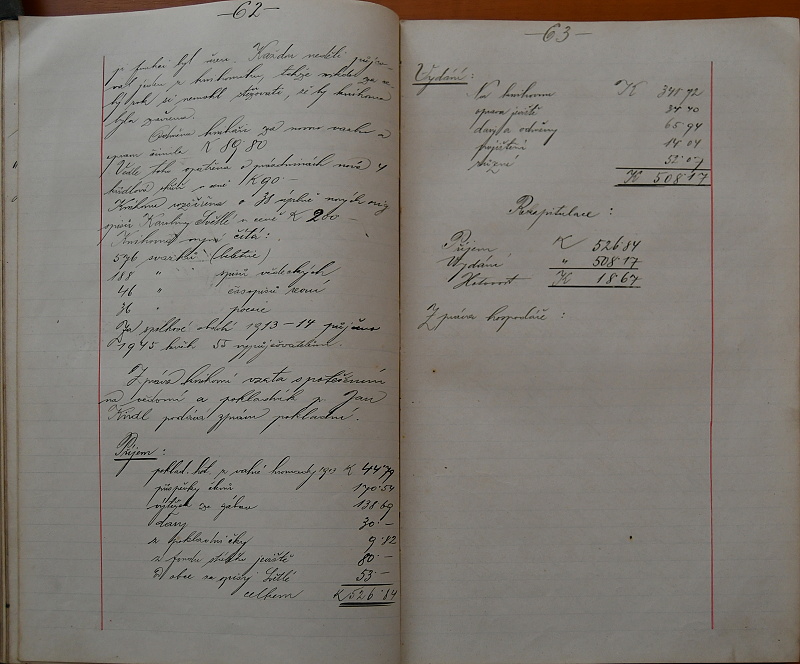 -62-
její funkci byl
Každou neděli
jeden z knihovníků, takže nikdo za ce-
lý rok si nemohl stěžovati, že by knihovna
byla zavřena.
Odměna knihaři za novou vazbu a
opravu činila K 89,80
Vedle toho opatřena o prázdninách nová 4
křídlová skříň v ceně K 90·-
Knihovna rozšířena o 38 úplně nových
spisů Karoliny Světlé v ceně K 200-
Knihovna nyní čítá:
546 svazků (beletrie)
188 " spisů vědeckých
46 " časopisů
36 " poesie
Za spolkové období 1913-14 půjčeno
1945 knih 55 vypůjčovatelům.
Zpráva knihovní vzata s potěšením
na vědomí a pokladník p. Jan
Kindl podává zprávu pokladní.
Příjem:
poklad. hot. z valné hromady 1913 K 44·79
příspěvky členů 170·54
výtěžek ze zábav 138·69
dary 30·-
z pokladničky 9·82
z fondu jeviště 80·-
Od obce na spisy Světlé 53·-
celkem K 526·84
-63-
Vydání:
Na knihovnu K 341·72
oprava jeviště 34·40
dary a odměny 65·94
pojištění 14·04
různé 52·07
K 508·17
Rekapitulace:
Příjem K 526·84
Vydání " 508·17
Hotovost K 18·67
Zpráva hospodáře: